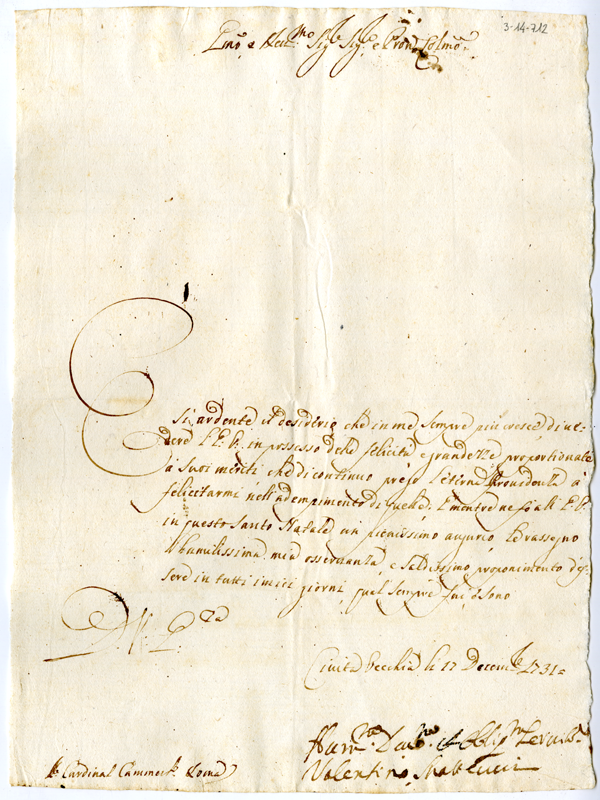 3-14-712
Em.o e Re.mo Sig.r Sig.r e Pron Colmo
È sì ardente il desiderio che in me sempre più cresce di ue-
dere l'E.V. in possesso delle felicità e grandezze proportionate
à suoi meriti, che di continuo prego l'eterna Prouidenza à
felicitarmi nell'adempimento di quelle. E mentre ne fò all'E.V.
in questo Santo Natale un pienissimo augurio le rassegno
l'humilissima mia osseruanza, e saldissimo proponimento d'es-
sere in tutti i miei giorni, qual sempre fui, e sono
Ciuita Vecchia li 17 Decem.bre 1731
Hum.mo Deu.mo et Obblig.mo Seru.re
S.r Cardinal Roma
Valentino Mattucci